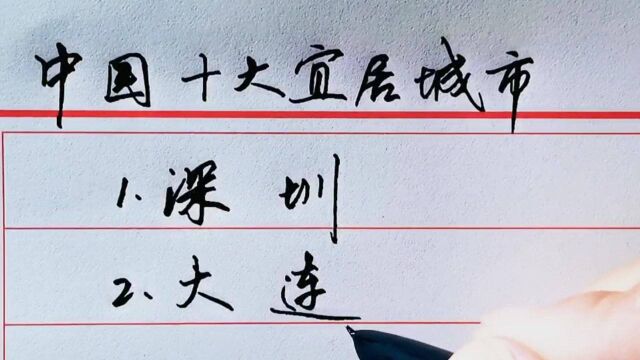 中国十大宜居城市
1.深圳
2、大连